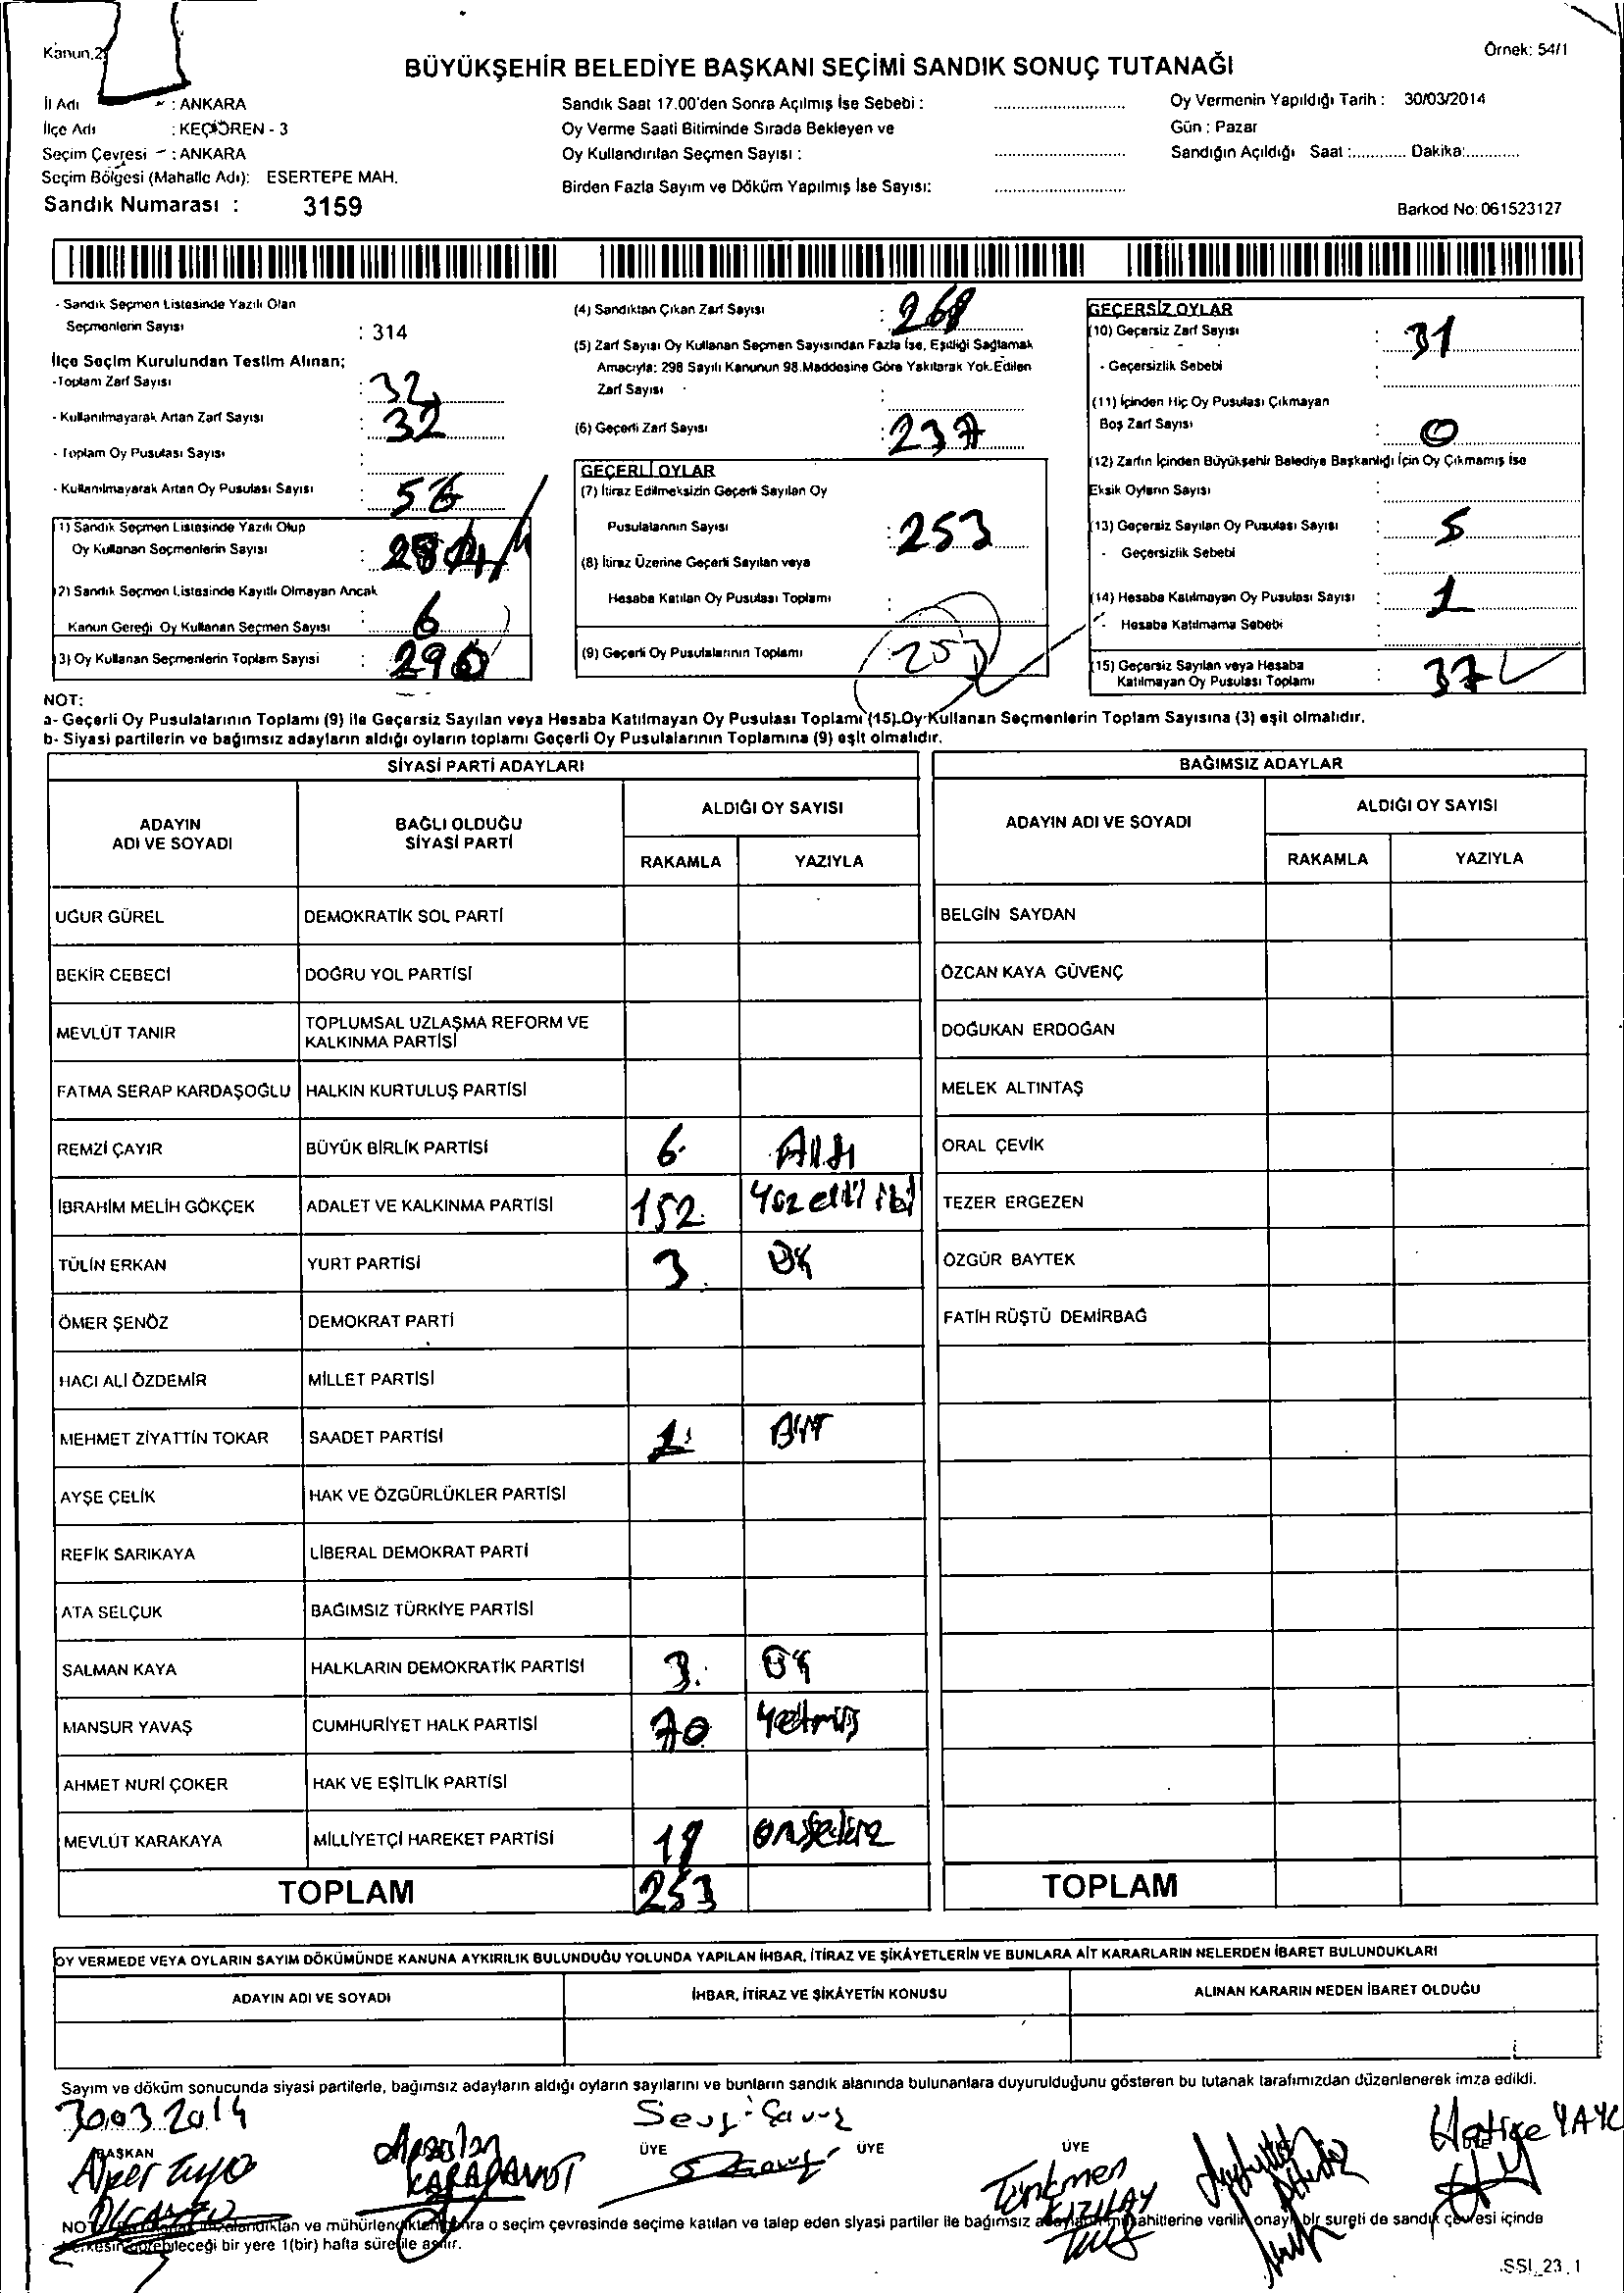 Kanun.2
Örnek: 54/1
BÜYÜKŞEHİR BELEDİYE BAŞKANI SEÇİMİ SANDIK SONUÇ TUTANAĞI
İl Adı : ANKARA
İlçe Adı : KEÇİÖREN - 3
Seçim Çevresi : ANKARA
Seçim Bölgesi (Mahalle Adı): ESERTEPE MAH.
Sandık Numarası : 3159
Sandık Saat 17.00'den Sonra Açılmış İse Sebebi :
Oy Verme Saati Bitiminde Sırada Bekleyen ve
Oy Kullandırılan Seçmen Sayısı :
Birden Fazla Sayım ve Döküm Yapılmış İse Sayısı:
Oy Vermenin Yapıldığı Tarih : 30/03/2014
Gün : Pazar
Sandığın Açıldığı Saat :............ Dakika:............
Barkod No: 061523127
- Sandık Seçmen Listesinde Yazılı Olan
Seçmenlerin Sayısı : 314
İlçe Seçim Kurulundan Teslim Alınan;
-Toplam Zarf Sayısı :
- Kullanılmayarak Artan Zarf Sayısı : 32
- Toplam Oy Pusulası Sayısı :
- Kullanılmayarak Artan Oy Pusulası Sayısı : 56
1) Sandık Seçmen Listesinde Yazılı Olup
Oy Kullanan Seçmenlerin Sayısı : 284
2) Sandık Seçmen Listesinde Kayıtlı Olmayan Ancak
Kanun Gereği Oy Kullanan Seçmen Sayısı : 6
3) Oy Kullanan Seçmenlerin Toplam Sayısı : 290
(4) Sandıktan Çıkan Zarf Sayısı : 268
(5) Zarf Sayısı Oy Kullanan Seçmen Sayısından Fazla İse, Eşitliği Sağlamak
Amacıyla; 298 Sayılı Kanunun 98.Maddesine Göre Yakılarak Yok Edilen
Zarf Sayısı :
(6) Geçerli Zarf Sayısı : 237
GEÇERLİ OYLAR
(7) İtiraz Edilmeksizin Geçerli Sayılan Oy
Pusulalarının Sayısı : 253
(8) İtiraz Üzerine Geçerli Sayılan veya
Hesaba Katılan Oy Pusulası Toplamı :
(9) Geçerli Oy Pusulalarının Toplamı : 253
GEÇERSİZ OYLAR
(10) Geçersiz Zarf Sayısı : 31
- Geçersizlik Sebebi
(11) İçinden Hiç Oy Pusulası Çıkmayan
Boş Zarf Sayısı : 0
(12) Zarfın İçinden Büyükşehir Belediye Başkanlığı İçin Oy Çıkmamış İse
Eksik Oyların Sayısı :
(13) Geçersiz Sayılan Oy Pusulası Sayısı : 5
- Geçersizlik Sebebi
(14) Hesaba Katılmayan Oy Pusulası Sayısı : 1
- Hesaba Katılmama Sebebi
(15) Geçersiz Sayılan veya Hesaba
Katılmayan Oy Pusulası Toplamı : 37
NOT:
a- Geçerli Oy Pusulalarının Toplamı (9) ile Geçersiz Sayılan veya Hesaba Katılmayan Oy Pusulası Toplamı (15) Oy Kullanan Seçmenlerin Toplam Sayısına (3) eşit olmalıdır.
b- Siyasi partilerin ve bağımsız adayların aldığı oyların toplamı Geçerli Oy Pusulalarının Toplamına (9) eşit olmalıdır.
SİYASİ PARTİ ADAYLARI
ADAYIN ADI VE SOYADI BAĞLI OLDUĞU SİYASİ PARTİ ALDIĞI OY SAYISI
RAKAMLA YAZIYLA
UĞUR GÜREL DEMOKRATİK SOL PARTİ
BEKİR CEBECİ DOĞRU YOL PARTİSİ
MEVLÜT TANIR TOPLUMSAL UZLAŞMA REFORM VE KALKINMA PARTİSİ
FATMA SERAP KARDAŞOĞLU HALKIN KURTULUŞ PARTİSİ
REMZİ ÇAYIR BÜYÜK BİRLİK PARTİSİ 6 Altı
İBRAHİM MELİH GÖKÇEK ADALET VE KALKINMA PARTİSİ 152 Yüz elli iki
TÜLİN ERKAN YURT PARTİSİ 3 Üç
ÖMER ŞENÖZ DEMOKRAT PARTİ
HACI ALİ ÖZDEMİR MİLLET PARTİSİ
MEHMET ZİYATTİN TOKAR SAADET PARTİSİ 1 Bir
AYŞE ÇELİK HAK VE ÖZGÜRLÜKLER PARTİSİ
REFİK SARIKAYA LİBERAL DEMOKRAT PARTİ
ATA SELÇUK BAĞIMSIZ TÜRKİYE PARTİSİ
SALMAN KAYA HALKLARIN DEMOKRATİK PARTİSİ 3 Üç
MANSUR YAVAŞ CUMHURİYET HALK PARTİSİ 70 Yetmiş
AHMET NURİ ÇOKER HAK VE EŞİTLİK PARTİSİ
MEVLÜT KARAKAYA MİLLİYETÇİ HAREKET PARTİSİ 18 onsekiz
TOPLAM 253
BAĞIMSIZ ADAYLAR
ADAYIN ADI VE SOYADI ALDIĞI OY SAYISI
RAKAMLA YAZIYLA
BELGİN SAYDAN
ÖZCAN KAYA GÜVENÇ
DOĞUKAN ERDOĞAN
MELEK ALTINTAŞ
ORAL ÇEVİK
TEZER ERGEZEN
ÖZGÜR BAYTEK
FATİH RÜŞTÜ DEMİRBAĞ
TOPLAM
OY VERMEDE VEYA OYLARIN SAYIM DÖKÜMÜNDE KANUNA AYKIRILIK BULUNDUĞU YOLUNDA YAPILAN İHBAR, İTİRAZ VE ŞİKÂYETLERİN VE BUNLARA AİT KARARLARIN NELERDEN İBARET BULUNDUKLARI
ADAYIN ADI VE SOYADI İHBAR, İTİRAZ VE ŞİKÂYETİN KONUSU ALINAN KARARIN NEDEN İBARET OLDUĞU
Sayım ve döküm sonucunda siyasi partilerle, bağımsız adayların aldığı oyların sayılarını ve bunların sandık alanında bulunanlara duyurulduğunu gösteren bu tutanak tarafımızdan düzenlenerek imza edildi.
30.03.2014
BAŞKAN ÜYE ÜYE ÜYE
Türkmen KIZILAY
Hatice
NOT: ve mühürlendikten sonra o seçim çevresinde seçime katılan ve talep eden siyasi partiler ile bağımsız verilir, onaylı bir sureti de sandık çevresi içinde
herkesin görebileceği bir yere 1(bir) hafta süre ile asılır.
SSI_23_1